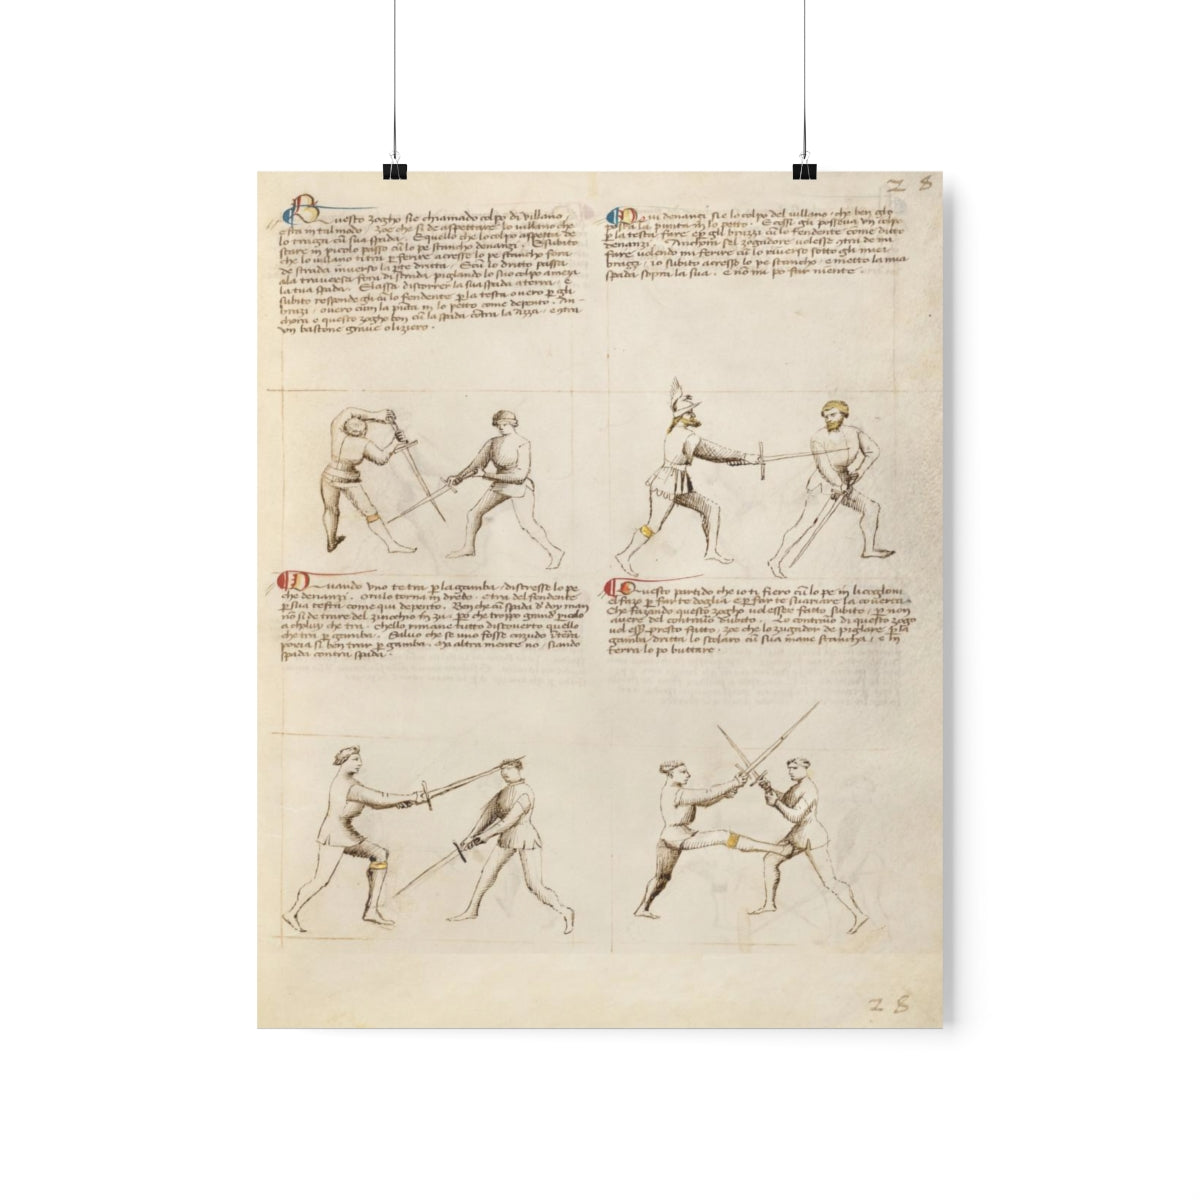 28
Questo zogho sie chiamado colpo di villano /
e sta in tal modo / zoe che si de aspettare lo villano che
lo traga cū sua spada . E quello che lo colpo aspetta de
stare in picolo passo cū lo pe stancho denanzi . E subito
che lo villano ti tra p ferire acresse lo pe stancho fora
de strada inverso la pte dritta . E cū lo dritto passa
ala traversa fora di strada piglando lo suo colpo a meza
la tua spada . E lassa discorrer la sua spada a terra / e
subito responde gli cū lo fendente p la testa overo p gli
brazi / overo cum la pūta in lo petto come depento . An-
chora e questo zogho bon cū la spada cōtra la azza / cōtra
un bastone grave o liziero .
Qui denanzi sie lo colpo del villano / che ben glo
posta la punta in lo petto . E cossi gli posseva un colpo
p la testa fare e p gli brazzi cū lo fendente come ditto
denanzi . Anchora sel zogadore volesse contra de mi
fare volendo mi ferire cū lo riverso sotto gli miei
brazzi / io subito acresso lo pe stancho / e metto la mia
spada sopra la sua . e nō mi po far niente .
Quando uno te tra p la gamba / discresse lo pe
che denanzi . O tu lo torna in dredo . e tra del fendente
p sua testa come qui depento . Ben che cū spada d'doy man
nō si de trare del zinochio in zu . p che troppo grand' picolo
a choluy che tra . Chello rimane tutto discoverto quello
che tra p gamba . Salvo che se uno fosse cazudo ī terra
poria sī ben trar p gamba . Ma altra mente no / siando
spada contra spada .
Questo partido che io ti fiero cū lo pe in li coglioni
el fazo p far te doglia e p far te svariare la coverta .
Che fazando questo zogho vol essere fatto subito / p non
avere del contrario dubito . Lo contrario di questo zogo
vol ess' presto fatto / zoe che lo zugador de piglare p la
gamba dritta lo scolaro cū sua mane stancha / e in
terra lo po buttare .
28